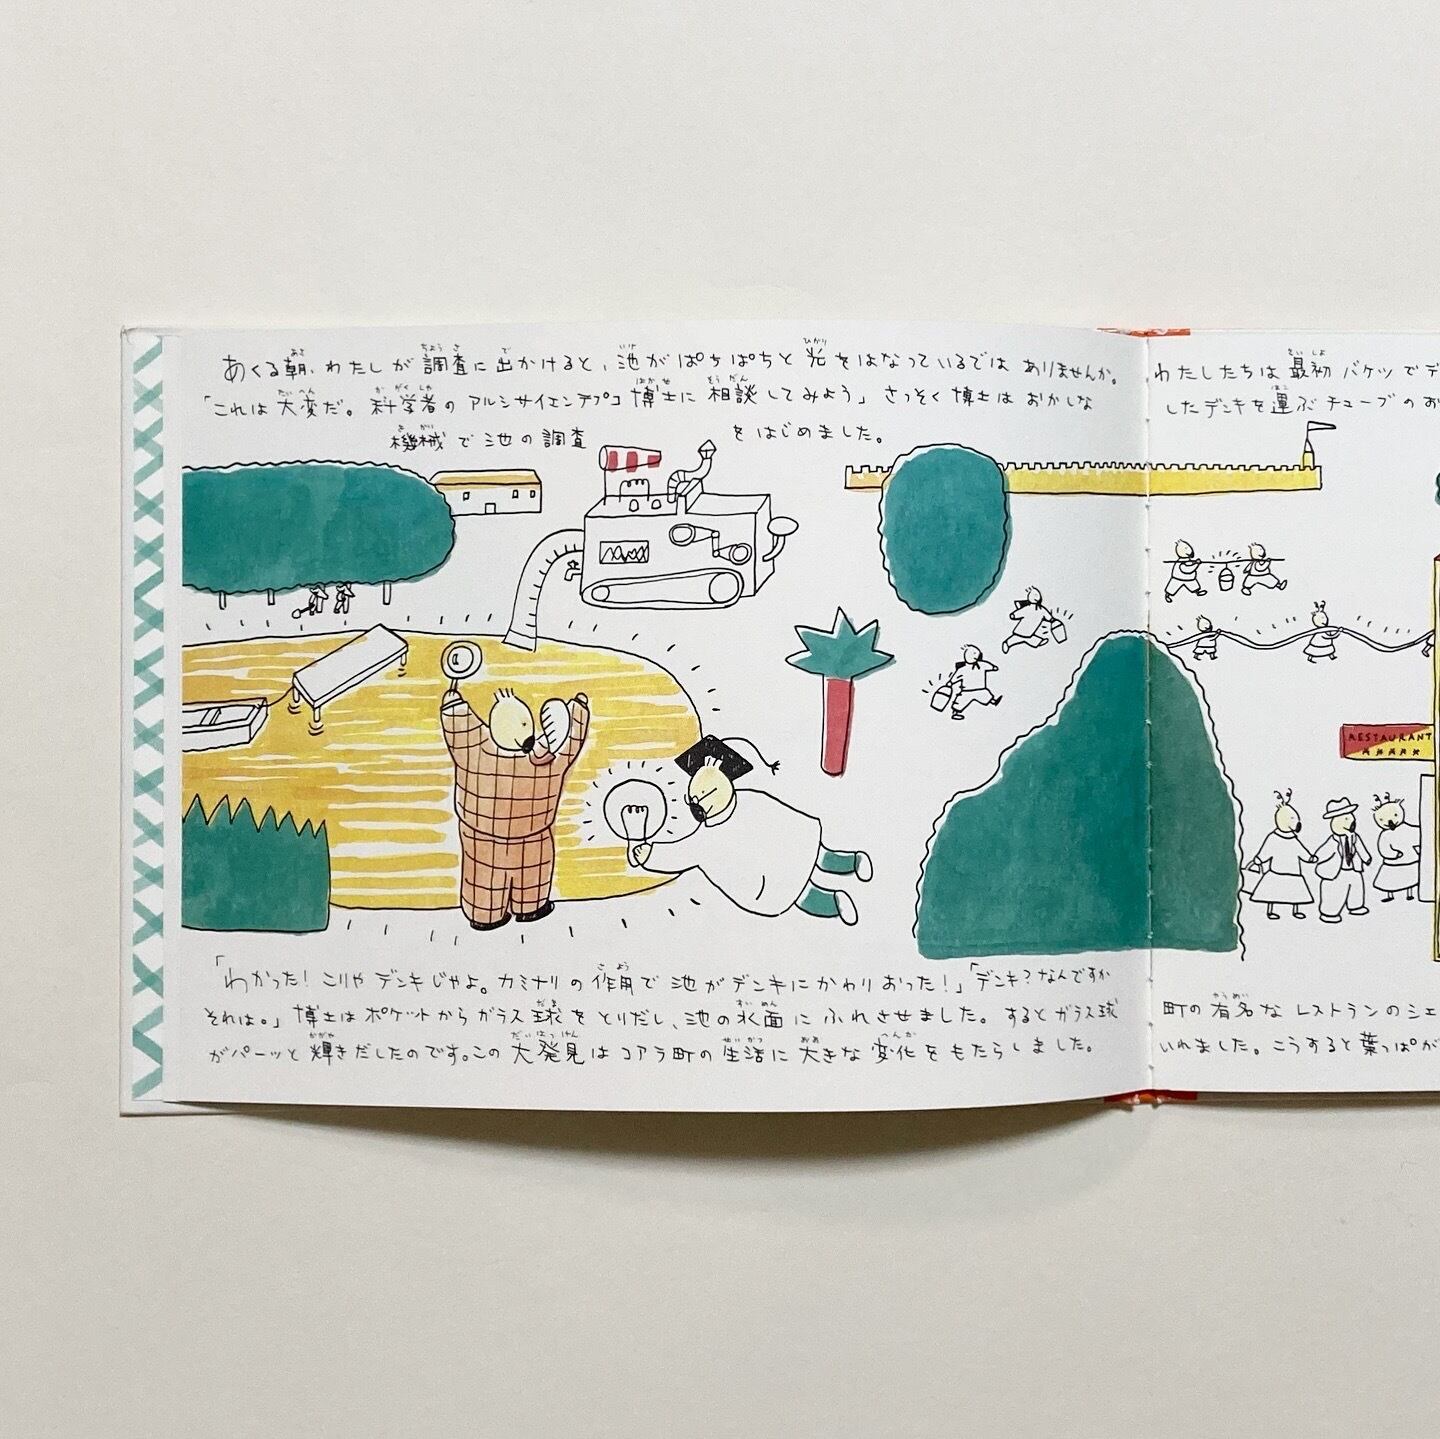 あくる朝、わたしが調査に出かけると、池がぱちぱちと光をはなっているではありませんか。
「これは大変だ。科学者のアルシサイエンテプコ博士に相談してみよう」さっそく博士はおかしな
機械で池の調査をはじめました。
「わかった！こりゃデンキじゃよ。カミナリの作用で池がデンキにかわりおった！」「デンキ？なんですか
それは。」博士はポケットからガラス球をとりだし、池の水面にふれさせました。するとガラス球
がパーッと輝きだしたのです。この大発見はコアラ町の生活に大きな変化をもたらしました。
わたしたちは最初バケツでデ
したデンキを運ぶチューブのお
RESTAURANT
町の有名なレストランのシェ
いれました。こうすると葉っぱが